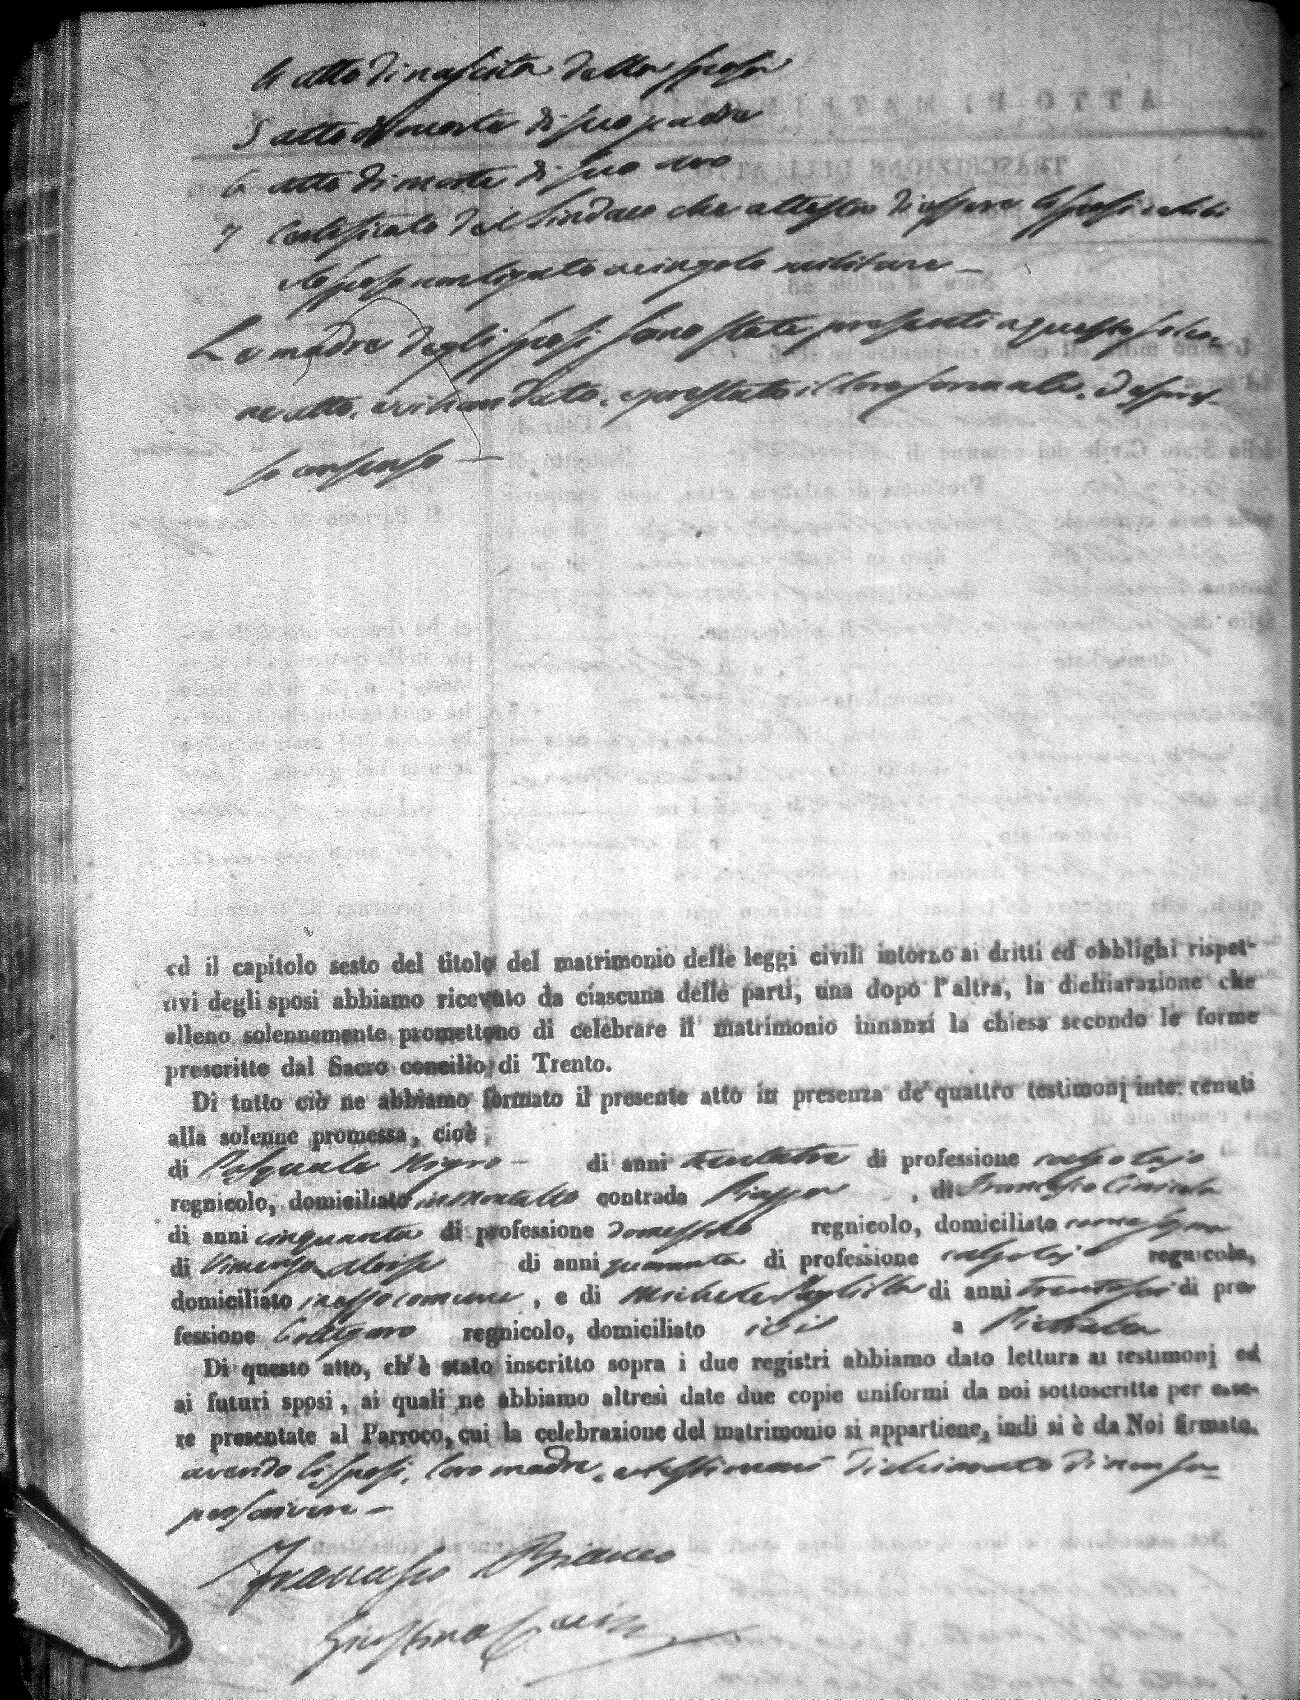 4 atto di nascita della sposa
5 atto di morte di suo padre
6 atto di morte di suo avo
7 Certificato del Sindaco che attesta di essere li sposi celibi
e lo sposo non ligato a vingolo militare
Le madre degli sposi sono state presenti a questo solen-
ne atto, e vi han dato, e prestato il loro formale, ed espres-
so consenso
ed il capitolo sesto del titolo del matrimonio delle leggi civili intorno ai dritti ed obblighi rispet-
tivi degli sposi abbiamo ricevuto da ciascuna delle parti, una dopo l'altra, la dichiarazione che
elleno solennemente promettono di celebrare il matrimonio innanzi la chiesa secondo le forme
prescritte dal Sacro concilio di Trento.
Di tutto ciò ne abbiamo formato il presente atto in presenza de' quattro testimonj intervenuti
alla solenne promessa, cioè,
di Pasquale Nigro di anni di professione
regnicolo, domiciliato in Montalto contrada Piazza, di Francesco
di anni cinquanta di professione domestico regnicolo, domiciliato come sopra
di Vincenzo Aloise di anni quaranta di professione calzolajo regnicolo,
domiciliato in esso comune, e di Michele di anni trentasei di pro-
fessione regnicolo, domiciliato ivi a
Di questo atto, ch'è stato inscritto sopra i due registri abbiamo dato lettura ai testimonj ed
ai futuri sposi, ai quali ne abbiamo altresì date due copie uniformi da noi sottoscritte per esse-
re presentate al Parroco, cui la celebrazione del matrimonio si appartiene, indi si è da Noi firmato.
avendo li sposi, loro madre, e testimoni dichiarato di non sa-
per scrivere
Francesco
Giustino